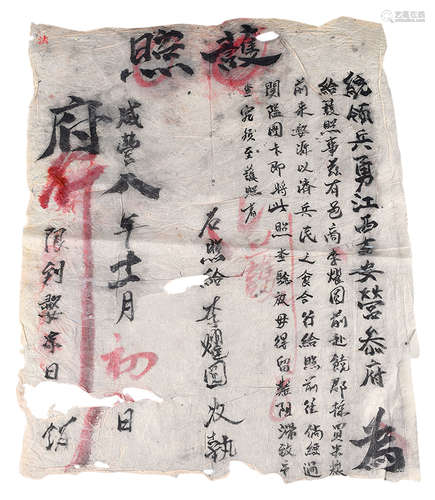 護照
統領兵勇江西吉安營參府為
給護照事茲有邑商李燿圓前赴饒郡採買米糧
前來婺源以濟兵民之食合行給照前往倘經過
關隘團卡即將此照查驗放毋得留難阻滯致干
查究須至護照者
右照給李燿圓收執
咸豐八年十一月初日
府行
限到婺源日繳